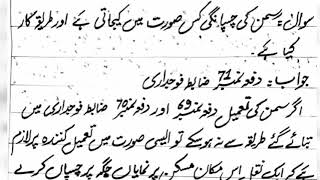 سوال: پرسمن کی چسپانگی کس صورت میں کیجاتی ہے اور طریقہ کار
کیا ہے۔
جواب: دفعہ نمبر 71 ضابطہ فوجداری
اگر سمن کی تعمیل دفعہ نمبر 69 اور دفعہ نمبر 70 ضابطہ فوجداری میں
بتائے گئے طریقہ سے نہ ہوسکے تو ایسی صورت میں تعمیل کنندہ پر لازم
ہے کہ ایک نقل اس مکان مسکن پر نمایاں جگہ پر چسپاں کرے